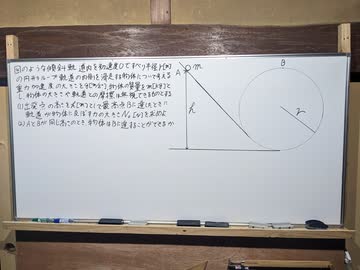 図のような傾斜軌道内を初速度0ですべり半径r[m]
の円形ループ軌道の内側を滑走する物体について考える
重力加速度の大きさをg[m/s²],物体の質量をm[kg]と
し,物体の大きさや軌道との摩擦は無視できるものとする
(1)出発点の高さをh[m]として最高点Bに達したときに
軌道が物体に及ぼす力の大きさN₀[N]を求めよ
(2)AとBが同じ高さのとき物体はBに達することができるか
A
m
h
B
r